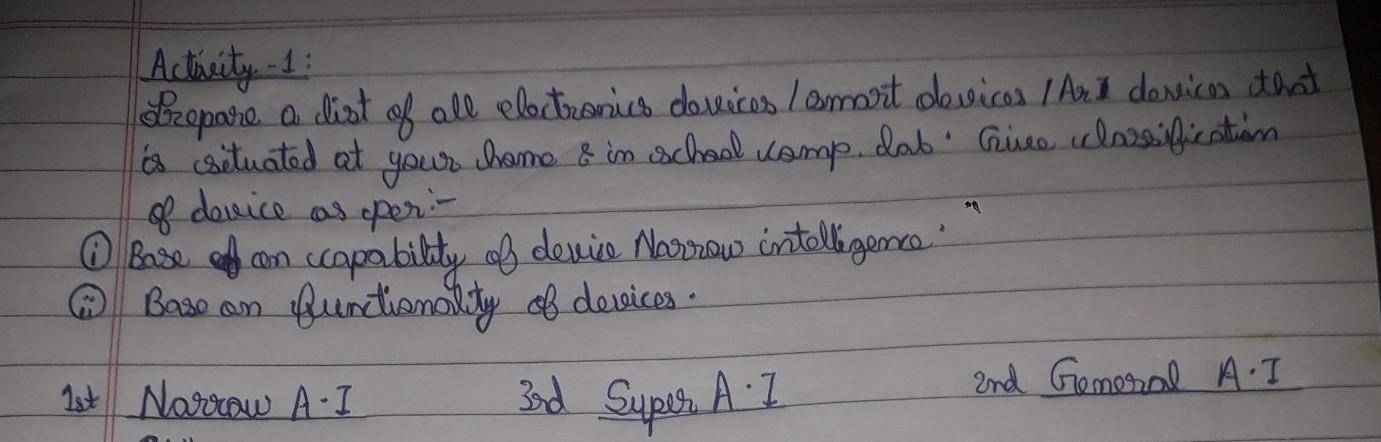 Activity-1:
Prepare a list of all electronics devices / smart devices / A.I devices that
is situated at your home & in school comp. lab. Give classification
of device as per:-
(i) Base on capability of device Narrow intelligence.
(ii) Base on functionality of devices.
1st Narrow A.I 3rd Super A.I 2nd General A.I